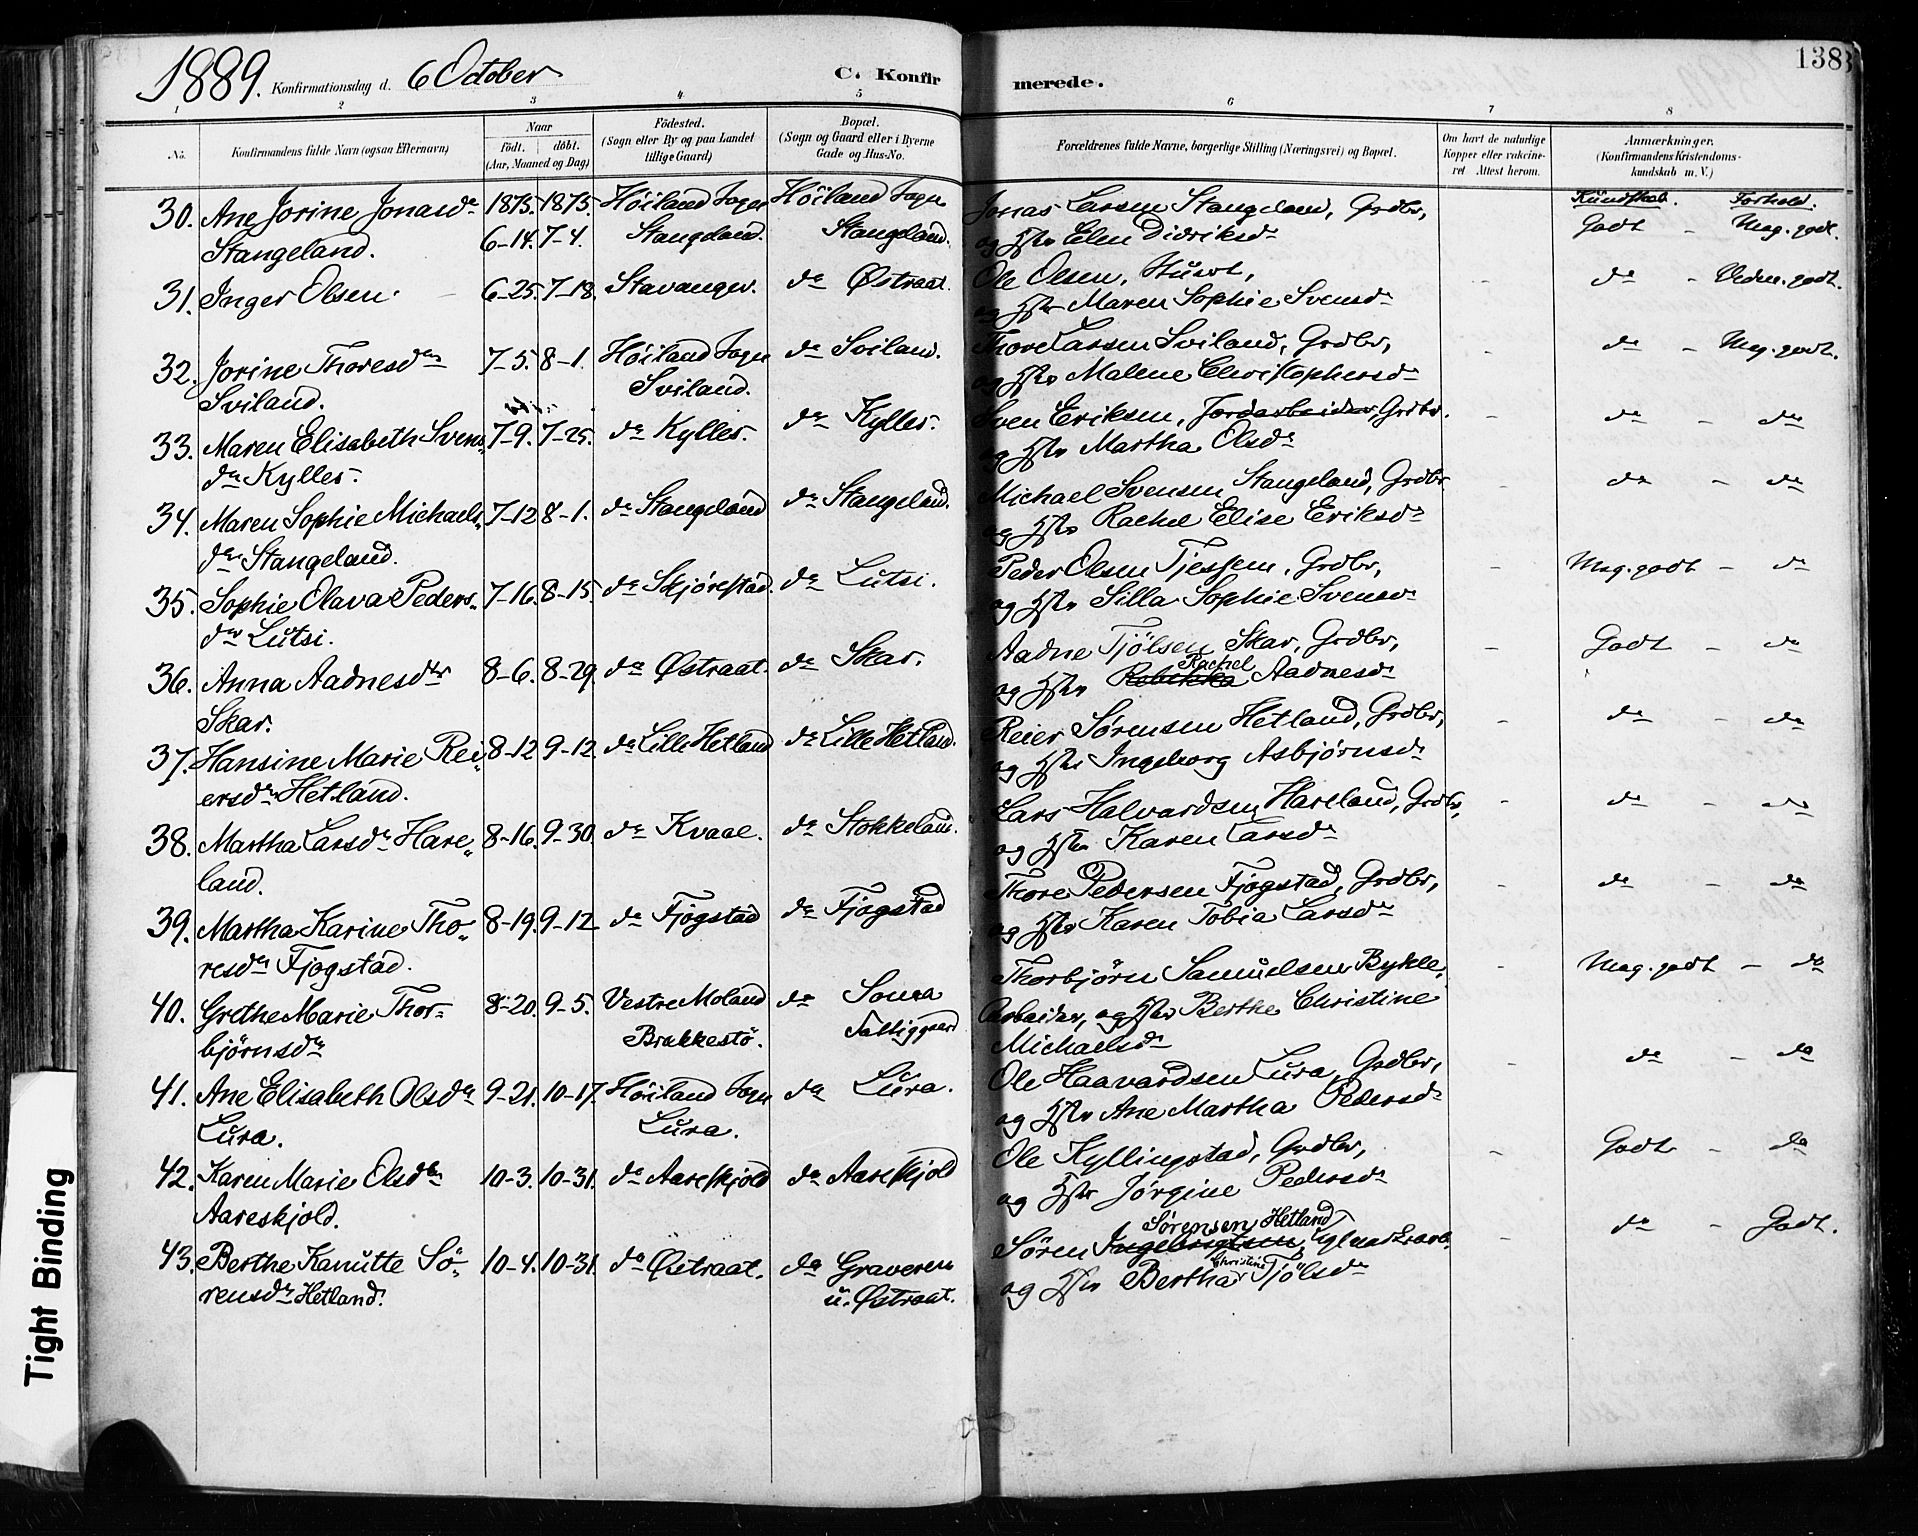 1889. Konfirmationsdag d. 6 October C. Konfir merede. 138
1 2 3 4 5 6 7 8
No. Konfirmandens fulde Navn (ogsaa Efternavn) Naar født. døbt. (Aar, Maaned og Dag) Födested. (Sogn eller By og paa Landet tillige Gaard) Bopæl. (Sogn og Gaard eller i Byerne Gade og Hus-No. Forældrenes fulde Navne, borgerlige Stilling (Næringsvei) og Bopæl. Om havt de naturlige Kopper eller vakcineret. Attest herom. Anmærkninger. (Konfirmandens Kristendomskundskab m. V.)
Kundskab. Forhold.
30. Ane Jorine Jonasdr 1875. 1875. Höiland Sogn Höiland Sogn Jonas Larsen Stangeland, Grdbr,
Stangeland. 6-14. 7-4. Stangeland. Stangeland. og Hstr Elen Didriksdr Godt - Meg. godt.
31. Inger Olsen. 6-25. 7-18. Stavanger. do Østraat. Ole Olsen, Husm., - do - Meg. godt.
og Hstr Maren Sophie Svensdr
32. Jorine Thoresdtr 7-5. 8-1. Höiland Sogn do Sviland. Thore Larsen Sviland, Grdbr, - do - Meg. godt.
Sviland. Sviland. og Hstr Malene Christophersdr
33. Maren Elisabeth Svens- 7-9. 7-25. do Kylles. do Kylles. Sven Eriksen, Jordarbeider, Grdbr. - do - do
dr Kylles. og Hstr Martha Olsdr
34. Maren Sophie Michaels- 7-12 8-1. do Stangeland do Stangeland. Michael Svensen Stangeland, Grdbr. - do - do
dr Stangeland. og Hstr Rachel Elise Eriksdr
35. Sophie Olava Peders- 7-16. 8-15. do Skjørestad. do Lutsi. Peder Olsen Tjessem, Grdbr, - Meg. godt - do
dr Lutsi. og Hstr Silla Sophie Svensdr
36. Anna Aadnesdtr 8-6. 8-29. do Østraat. do Skar. Aadne Tjölsen Skar, Grdbr, - Godt - do
Skar. og Hstr Rebekka Rachel Aadnesdr
37. Hansine Marie Rei- 8-12 9-12. do Lille Hetland do Lille Hetland. Reier Sørensen Hetland, Grdbr, - do - do
ersdr Hetland. og Hstr Ingeborg Asbjørnsdr
38. Martha Larsdr Hare- 8-16. 9-30. do Kvaal. do Stokkeland. Lars Halvardsen Hareland, Grdbr, - do - do
land. og Hstr Karen Larsdr
39. Martha Karine Tho- 8-19. 9-12 do Fjogstad do Fjogstad Thore Pedersen Fjogstad, Grdbr, - do - do
resdr Fjogstad. og Hstr Karen Tobia Larsdr
40. Grethe Marie Thor- 8-20. 9-5. Vestre Moland do Soma Thorbjörn Samuelsen Bykle, - Meg. godt - do
björnsdr Brækkestö. Fattiggaard Arbeider, og Hstr Berthe Christine
Michaelsdr
41. Ane Elisabeth Olsdr 9-21. 10-17. Höiland Sogn do Lura. Ole Haavardsen Lura, Grdbr, - do - do
Lura. Lura. og Hstr Ane Martha Pedersdr
42. Karen Marie Olsdtr 10-3. 10-31. do Aareskjold do Aareskjold Ole Kyllingstad, Grdbr, - Godt - do
Aareskjold. og Hstr Jørgine Pedersdr
43. Berthe Kanutte Sö- 10-4. 10-31. do Østraat. do Graveren Sören Ingebrigtsen Sørensen Hetland - do - Godt.
rensdr Hetland. u. Østraat. og Hstr Bertha Christine Tjölsdr
Tight Binding